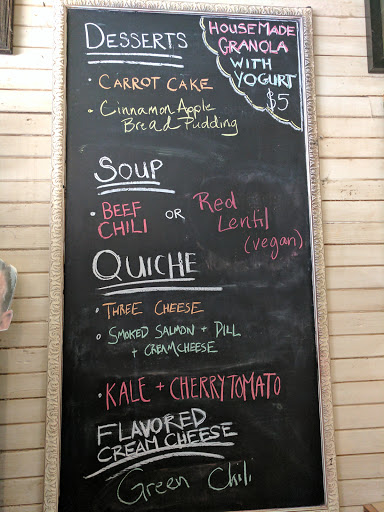 DESSERTS
HOUSEMADE
GRANOLA
WITH
YOGURT
$5
• CARROT CAKE
• Cinnamon Apple
Bread Pudding
SOUP
• BEEF
CHILI
OR
Red
Lentil
(vegan)
QUICHE
• THREE CHEESE
• SMOKED SALMON + DILL
+ CREAMCHEESE
• KALE + CHERRY TOMATO
FLAVORED
CREAM CHEESE
Green Chili